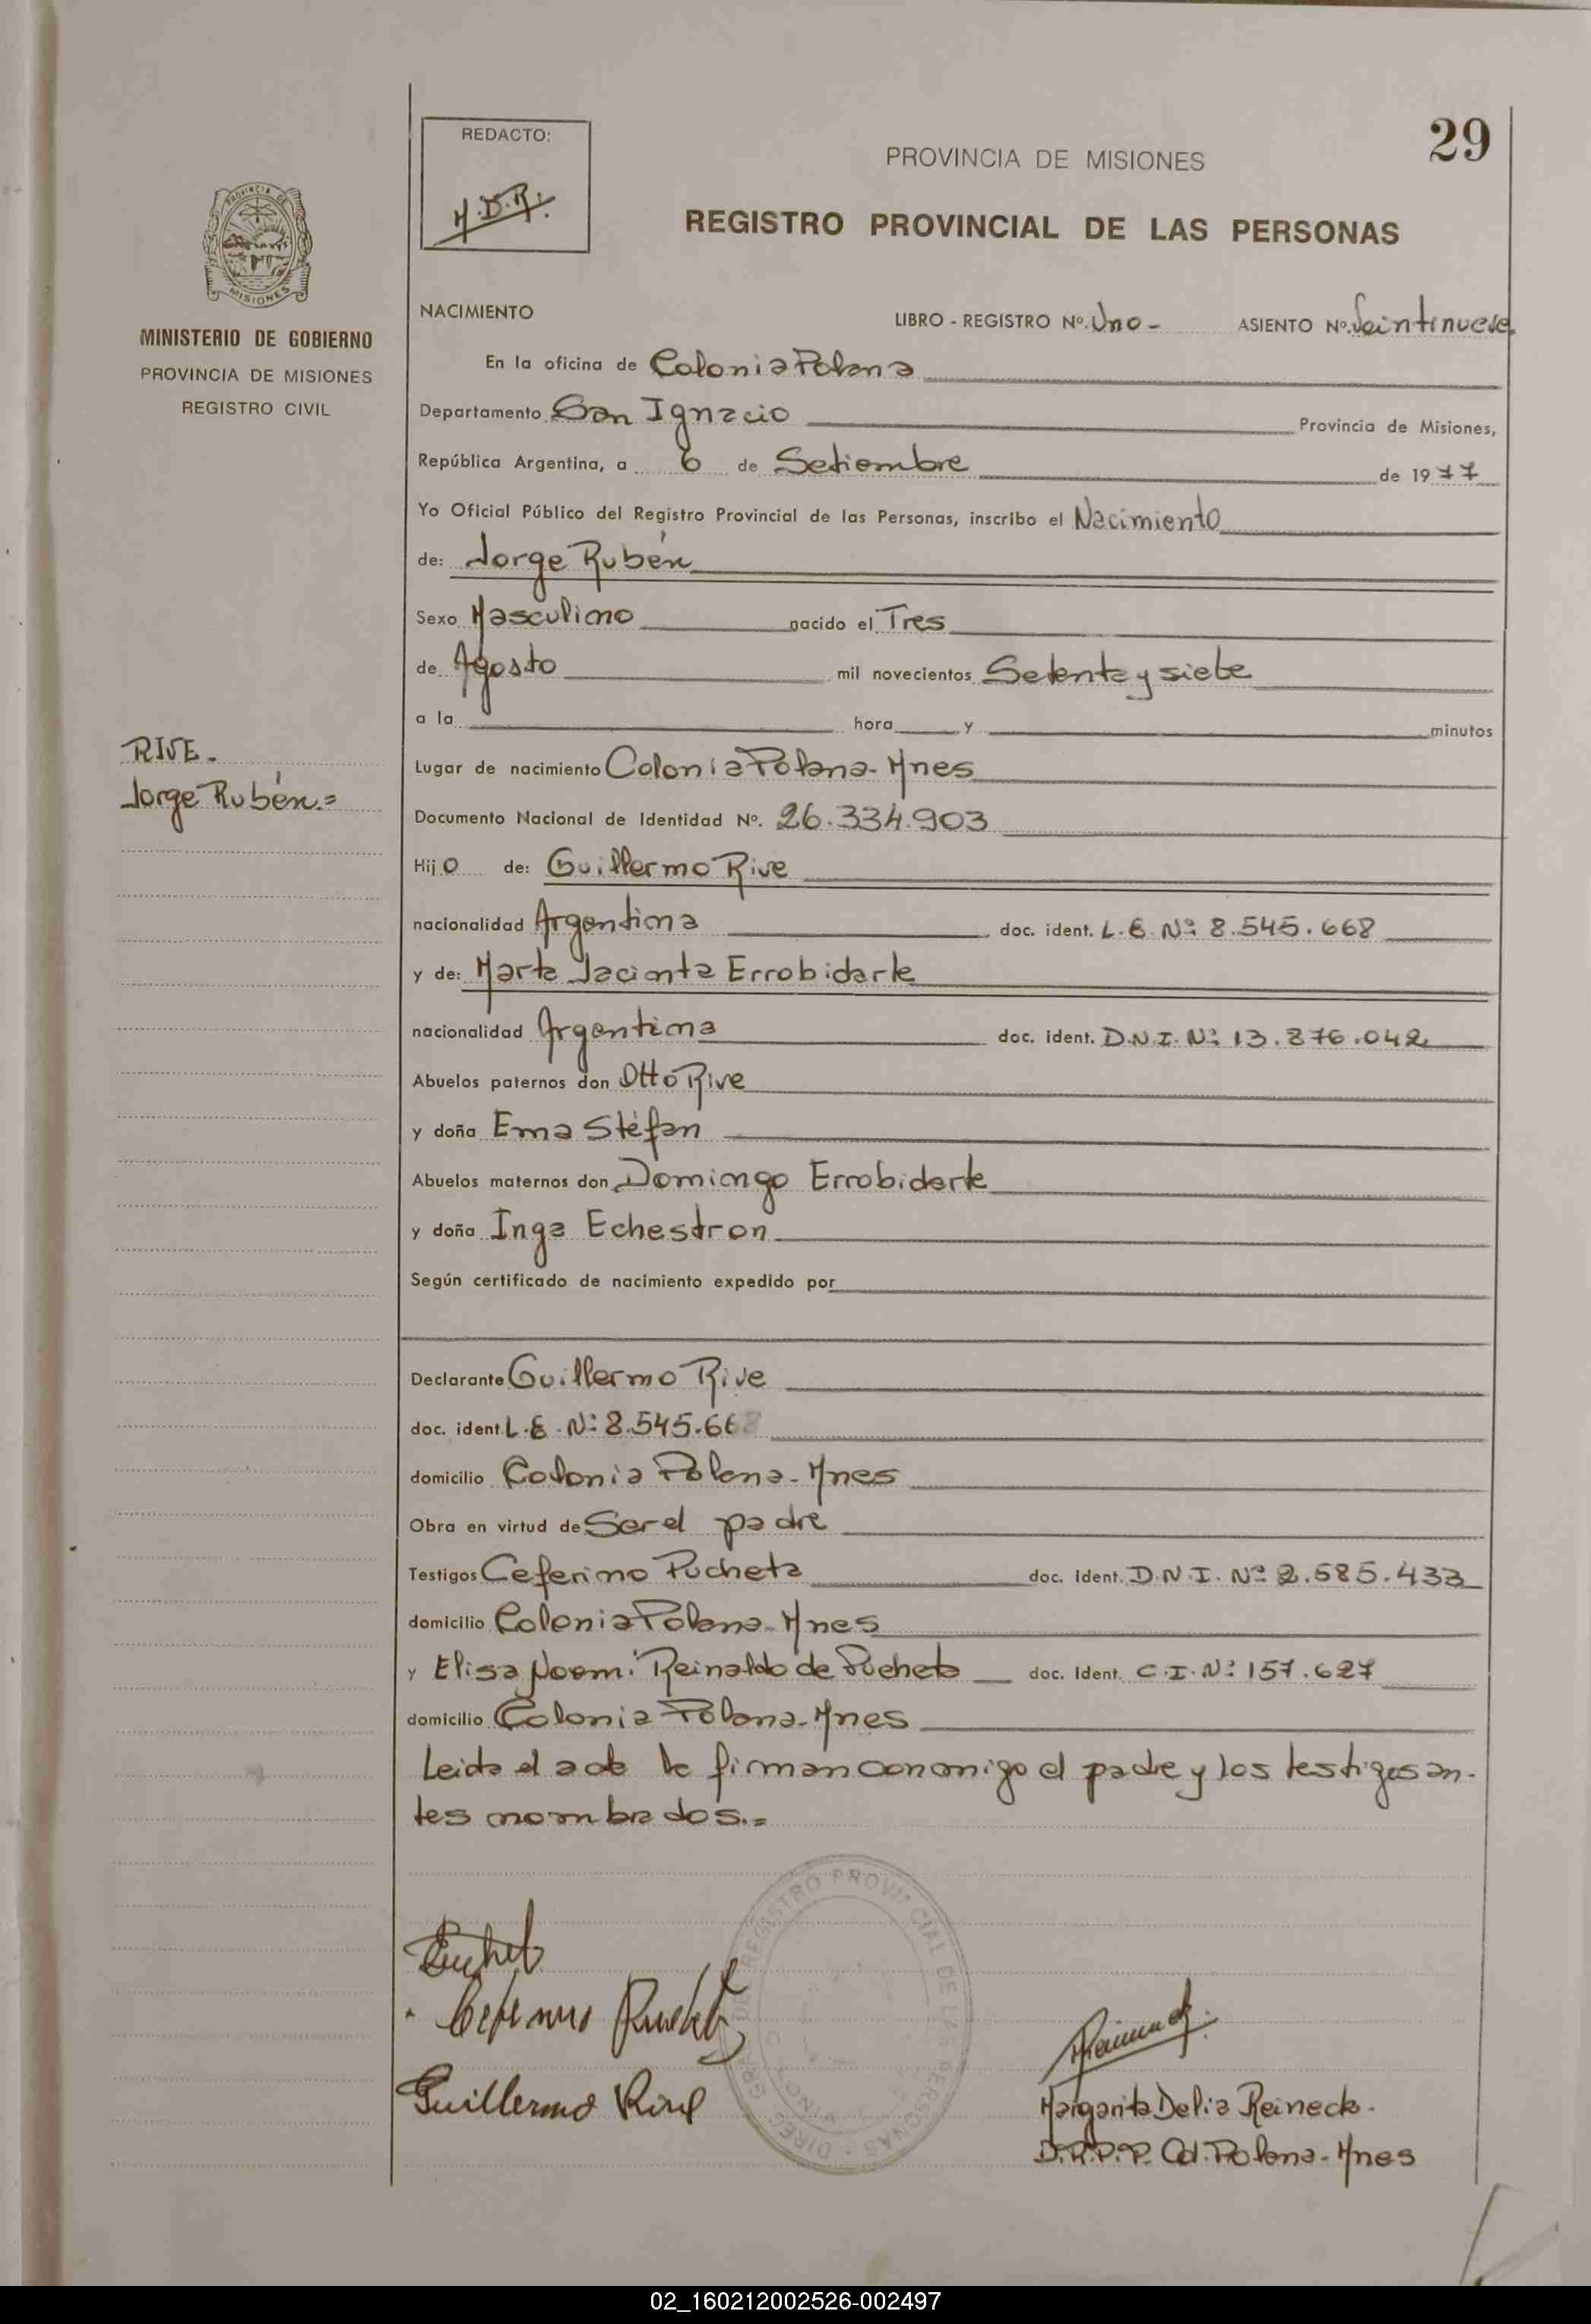 29
REDACTO:
M.D.R.
PROVINCIA DE MISIONES
REGISTRO PROVINCIAL DE LAS PERSONAS
PROVINCIA DE
MISIONES
MINISTERIO DE GOBIERNO
PROVINCIA DE MISIONES
REGISTRO CIVIL
RIVE.-
Jorge Rubén.=
NACIMIENTO LIBRO - REGISTRO Nº. Uno - ASIENTO Nº. Veintinueve.
En la oficina de Colonia Polana
Departamento San Ignacio Provincia de Misiones,
República Argentina, a 6 de Setiembre de 1977
Yo Oficial Público del Registro Provincial de las Personas, inscribo el Nacimiento
de: Jorge Rubén
Sexo Masculino nacido el Tres
de Agosto mil novecientos Setenta y siete
a la hora y minutos
Lugar de nacimiento Colonia Polana - Mnes
Documento Nacional de Identidad Nº. 26.334.903
Hijo de: Guillermo Rive
nacionalidad Argentina doc. ident. L.E. Nº: 8.545.668
y de: Marta Jacinta Errobidarte
nacionalidad Argentina doc. ident. D.N.I. Nº: 13.376.042
Abuelos paternos don Otto Rive
y doña Ema Stéfan
Abuelos maternos don Domingo Errobidarte
y doña Inga Echestron
Según certificado de nacimiento expedido por
Declarante Guillermo Rive
doc. ident L.E. Nº: 8.545.668
domicilio Colonia Polana - Mnes
Obra en virtud de Ser el padre
Testigos Ceferino Pucheta doc. Ident. D.N.I. Nº 2.585.433
domicilio Colonia Polana - Mnes
y Elisa Noemí Reinaldo de Pucheta doc. Ident. C.I. Nº: 157.627
domicilio Colonia Polana - Mnes
Leida el acta la firman conmigo el padre y los testigos an-
tes nombrados.=
Guillermo Rive
Margarita Delia Reineck.
D.R.P.P. Col. Polana - Mnes
02_160212002526-002497